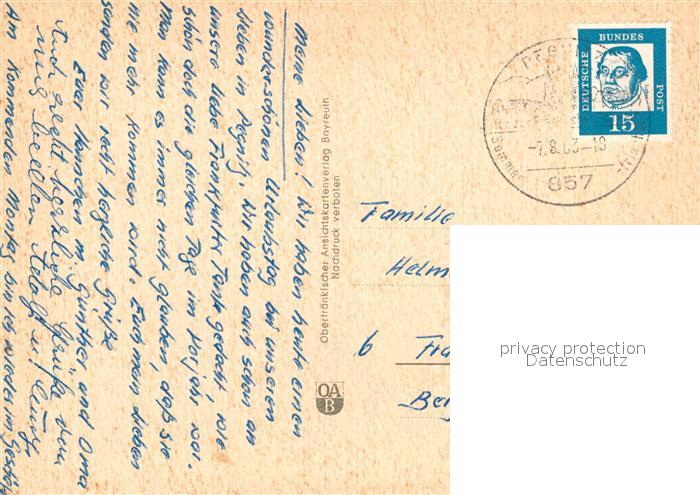 Meine Lieben! Wir haben heute einen
wunderschönen Urlaubstag bei unseren
Lieben in Pegnitz. Wir haben auch schon an
unsere liebe Frankfurter Tante gedacht, wie
schön doch die gleichen Tage im Vorjahr war.
Man kann es immer nicht glauben, daß sie
nie mehr kommen wird. Euch mein Lieben
senden wir recht herzliche Grüße
Euer Hannchen m. Günther und Oma
Auch recht herzliche Grüße von
Am kommenden Montag bin ich wieder im Geschäft
Oberfränkischer Ansichtskartenverlag Bayreuth
Nachdruck verboten
OA
B
DEUTSCHE
BUNDES
POST
15
PEGNITZ
-7.8.63-18
Sommer
857
Familie
Helm
6 Fra
Ber
privacy protection
Datenschutz